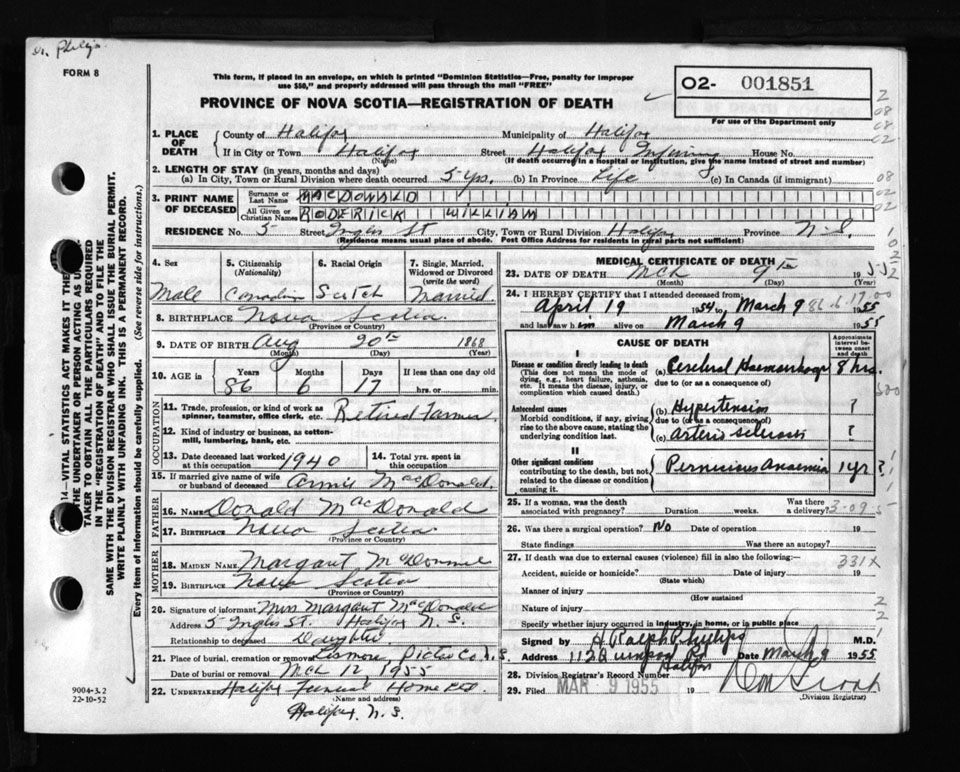 Dr. Philips
FORM 8
This form, if placed in an envelope, on which is printed "Dominion Statistics—Free, penalty for improper
use $50," and properly addressed will pass through the mail "FREE"
PROVINCE OF NOVA SCOTIA—REGISTRATION OF DEATH
02- 001851
For use of the Department only
1. PLACE OF DEATH County of Halifax Municipality of Halifax
If in City or Town Halifax Street Halifax Infirmary House No.
(Name) (If death occurred in a hospital or institution, give the name instead of street and number)
2. LENGTH OF STAY (in years, months and days)
(a) In City, Town or Rural Division where death occurred 5 yrs. (b) In Province Life (c) In Canada (if immigrant)
3. PRINT NAME OF DECEASED
Surname or Last Name MACDONALD
All Given or Christian Names RODERICK WILLIAM
RESIDENCE No. 5 Street Inglis St City, Town or Rural Division Halifax Province N.S.
(Residence means usual place of abode. Post Office Address for residents in rural parts not sufficient)
4. Sex Male
5. Citizenship (Nationality) Canadian
6. Racial Origin Scotch
7. Single, Married, Widowed or Divorced (write the word) Married
8. BIRTHPLACE Nova Scotia
(Province or Country)
9. DATE OF BIRTH Aug 20th 1868
(Month) (Day) (Year)
10. AGE in Years Months Days If less than one day
86 6 17 hrs. or min.
OCCUPATION
11. Trade, profession, or kind of work as spinner, teamster, office clerk, etc. Retired Farmer
12. Kind of industry or business, as cotton-mill, lumbering, bank, etc.
13. Date deceased last worked at this occupation 1940
14. Total yrs. spent in this occupation
15. If married give name of wife or husband of deceased Annie MacDonald
FATHER
16. NAME Donald MacDonald
17. BIRTHPLACE Nova Scotia
(Province or Country)
MOTHER
18. MAIDEN NAME Margaret
19. BIRTHPLACE Nova Scotia
(Province or Country)
20. Signature of informant Miss Margaret MacDonald
Address 5 Inglis St. Halifax N.S.
Relationship to deceased Daughter
21. Place of burial, cremation or removal Lismore, Pictou Co. N.S.
Date of burial or removal Mch 12 1955
22. UNDERTAKER Halifax Funeral Home Ltd.
(Name and address)
Halifax, N.S.
MEDICAL CERTIFICATE OF DEATH
23. DATE OF DEATH Mch 9th 1955
(Month) (Day)
24. I HEREBY CERTIFY that I attended deceased from
April 19 1954 to March 9 1955
86-6-17
and last saw him alive on March 9 1955
CAUSE OF DEATH
Approximate interval between onset and death
I
Disease or condition directly leading to death
(This does not mean the mode of dying, e.g., heart failure, asthenia, etc. It means the disease, injury, or complication which caused death.)
(a) Cerebral Haemorrhage 8 hrs.
due to (or as a consequence of)
Antecedent causes
Morbid conditions, if any, giving rise to the above cause, stating the underlying condition last.
(b) Hypertension ?
due to (or as a consequence of)
(c) Arterio sclerosis ?
II
Other significant conditions
contributing to the death, but not related to the disease or condition causing it.
Pernicious Anaemia 1 yr ?
25. If a woman, was the death associated with pregnancy? Duration weeks. Was there a delivery?
26. Was there a surgical operation? No Date of operation
State findings Was there an autopsy?
27. If death was due to external causes (violence) fill in also the following:—
331X
Accident, suicide or homicide? Date of injury 19
(State which)
Manner of injury
(How sustained)
Nature of injury
Specify whether injury occurred in industry, in home, or in public place
Signed by H. Ralph Philips M.D.
Address 112 Quinpool Rd Halifax Date March 9 1955
28. Division Registrar's Record Number
29. Filed MAR 9 1955 19
(Division Registrar)
14—VITAL STATISTICS ACT MAKES IT THE
THE UNDERTAKER OR PERSON ACTING AS UN-
TAKER TO OBTAIN ALL THE PARTICULARS REQUIRED
IN THE "REGISTRATION OF DEATH" AND TO FILE THE
SAME WITH THE DIVISION REGISTRAR WHO SHALL ISSUE THE BURIAL PERMIT.
WRITE PLAINLY WITH UNFADING INK. THIS IS A PERMANENT RECORD.
Every item of information should be carefully supplied. (See reverse side for instructions.)
9004-3.2
22-10-52